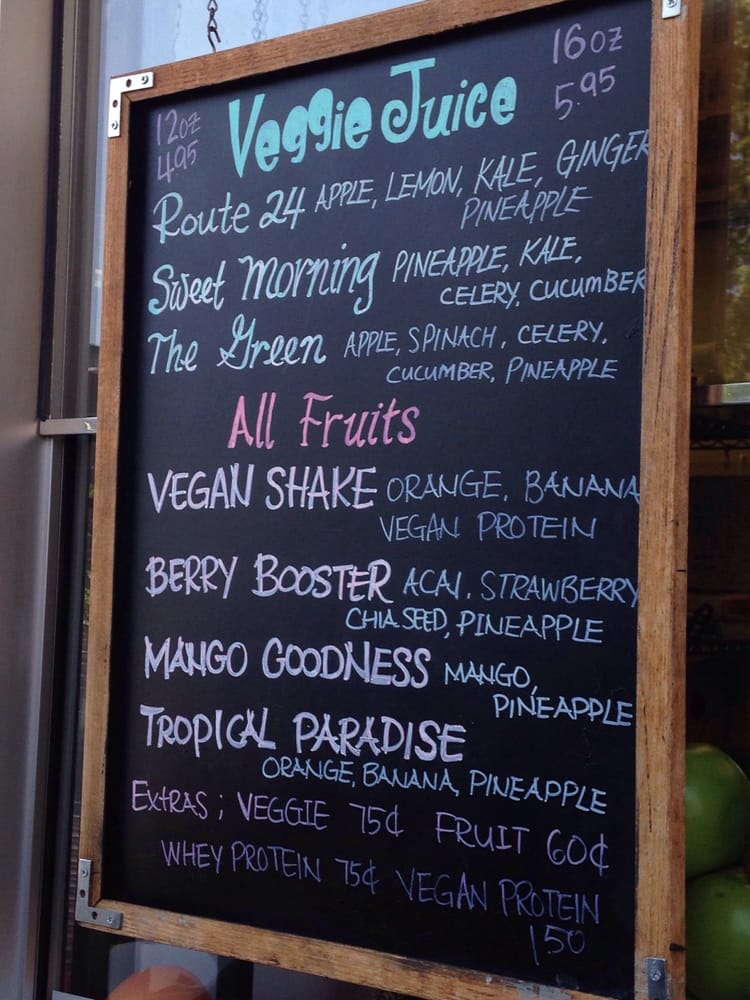 12oz
4.95
Veggie Juice
16oz
5.95
Route 24 APPLE, LEMON, KALE, GINGER
PINEAPPLE
Sweet Morning PINEAPPLE, KALE,
CELERY, CUCUMBER
The Green APPLE, SPINACH, CELERY,
CUCUMBER, PINEAPPLE
All Fruits
VEGAN SHAKE ORANGE, BANANA
VEGAN PROTEIN
BERRY BOOSTER ACAI, STRAWBERRY
CHIA SEED, PINEAPPLE
MANGO GOODNESS MANGO,
PINEAPPLE
TROPICAL PARADISE
ORANGE, BANANA, PINEAPPLE
Extras; VEGGIE 75¢ FRUIT 60¢
WHEY PROTEIN 75¢ VEGAN PROTEIN
150